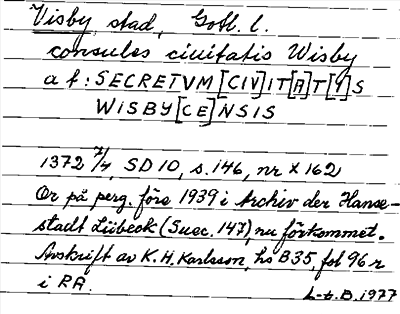 Visby stad, Gotl. l.
consules civitatis Wisby
a f: SECRETVM [CIV]IT[A]T[I]S
WISBY[CE]NSIS
1372 7/4, SD 10, s. 146, nr X 162
Or på perg. före 1939 i Archiv der Hanse-
stadt Lübeck (Suec. 147), nu förkommet.
Avskrift av K. H. Karlsson, hs B35, fol 96 r
i RA.
L-t. B. 1977